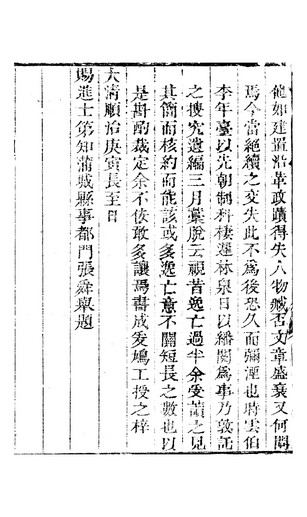 他如建置沿革政蹟得失人物臧否文章盛衰又何關
焉今當絕續之交失此不為後恐久而彌湮也時雲伯
李年臺以先朝制科棲遲林泉日以繙閱為事乃敦託
之搜究遺編三月藁脫云視昔逸亡過半余受讀之見
其簡而核約而能該或多逸亡意不關短長之數也以
是斟酌裁定余不佞敢多讓焉書成爰鳩工授之梓
大清順治庚寅長至日
賜進士第知蒲城縣事都門張舜舉題